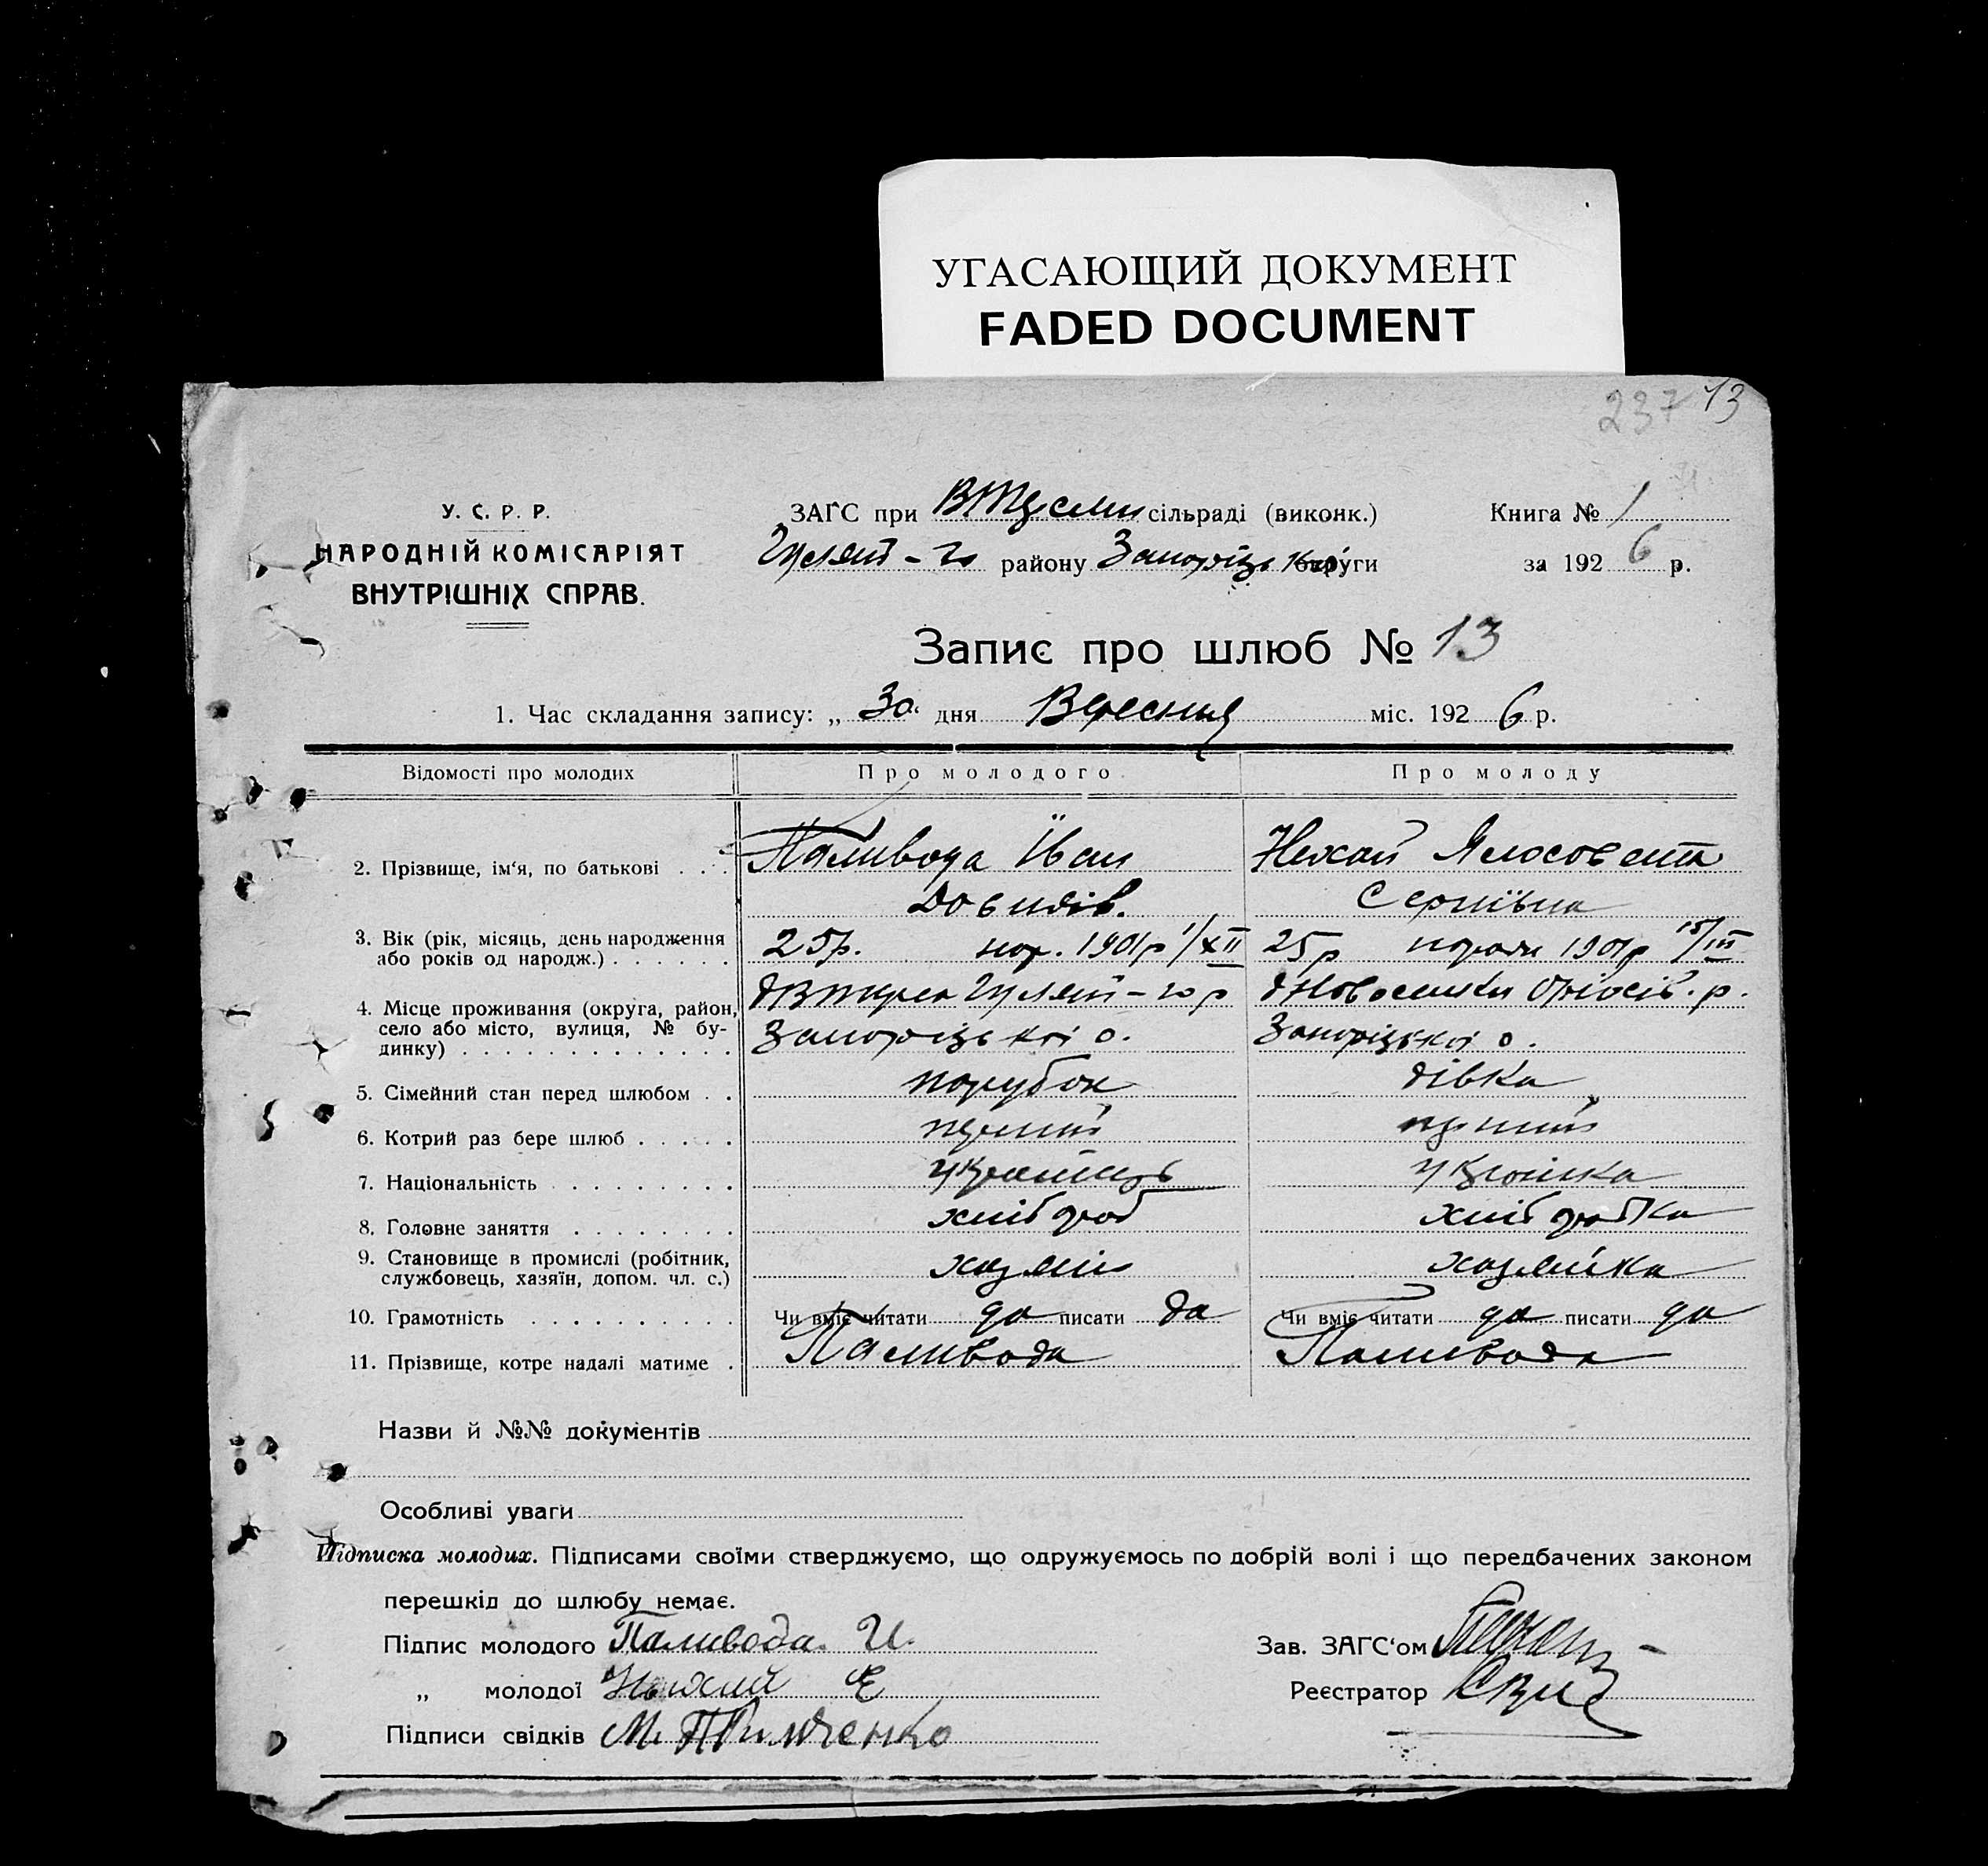 УГАСАЮЩИЙ ДОКУМЕНТ
FADED DOCUMENT
237 13
У. С. Р. Р.
НАРОДНІЙ КОМІСАРІЯТ
ВНУТРІШНІХ СПРАВ.
ЗАГС при сільраді (виконк.)
Книга № 1
Гуляй-го району Запорізької округи
за 1926 р.
Запис про шлюб № 13
1. Час складання запису: „ 30 дня Вересня міс. 1926 р.
Відомості про молодих Про молодого Про молоду
2. Прізвище, ім‘я, по батькові . . . Паливода Іван Нехай Ялосовета
Довидів. Сергіївна
3. Вік (рік, місяць, день народження або років од народж.) . . . . . . 25р. нар. 1901р 1/XII 25р народж 1901р 15/III
4. Місце проживання (округа, район, село або місто, вулиця, № будинку) . . . . . . . . . . . . . Гуляй-го р Запорізької о. Новоселки р. Запорізької о.
5. Сімейний стан перед шлюбом . . парубок дівка
6. Котрий раз бере шлюб . . . . . перший перший
7. Національність . . . . . . . . українець українка
8. Головне заняття . . . . . . . . хліброб хлібробка
9. Становище в промислі (робітник, службовець, хазяїн, допом. чл. с.) хазяїн хазяйка
10. Грамотність . . . . . . . . . . Чи вміє читати да писати да Чи вміє читати да писати да
11. Прізвище, котре надалі матиме . Паливода Паливода
Назви й №№ документів
Особливі уваги
Підписка молодих. Підписами своїми стверджуємо, що одружуємось по добрій волі і що передбачених законом
перешкід до шлюбу немає.
Підпис молодого Паливода И.
Зав. ЗАГС‘ом
„ молодої Нехай Е
Реєстратор
Підписи свідків М.